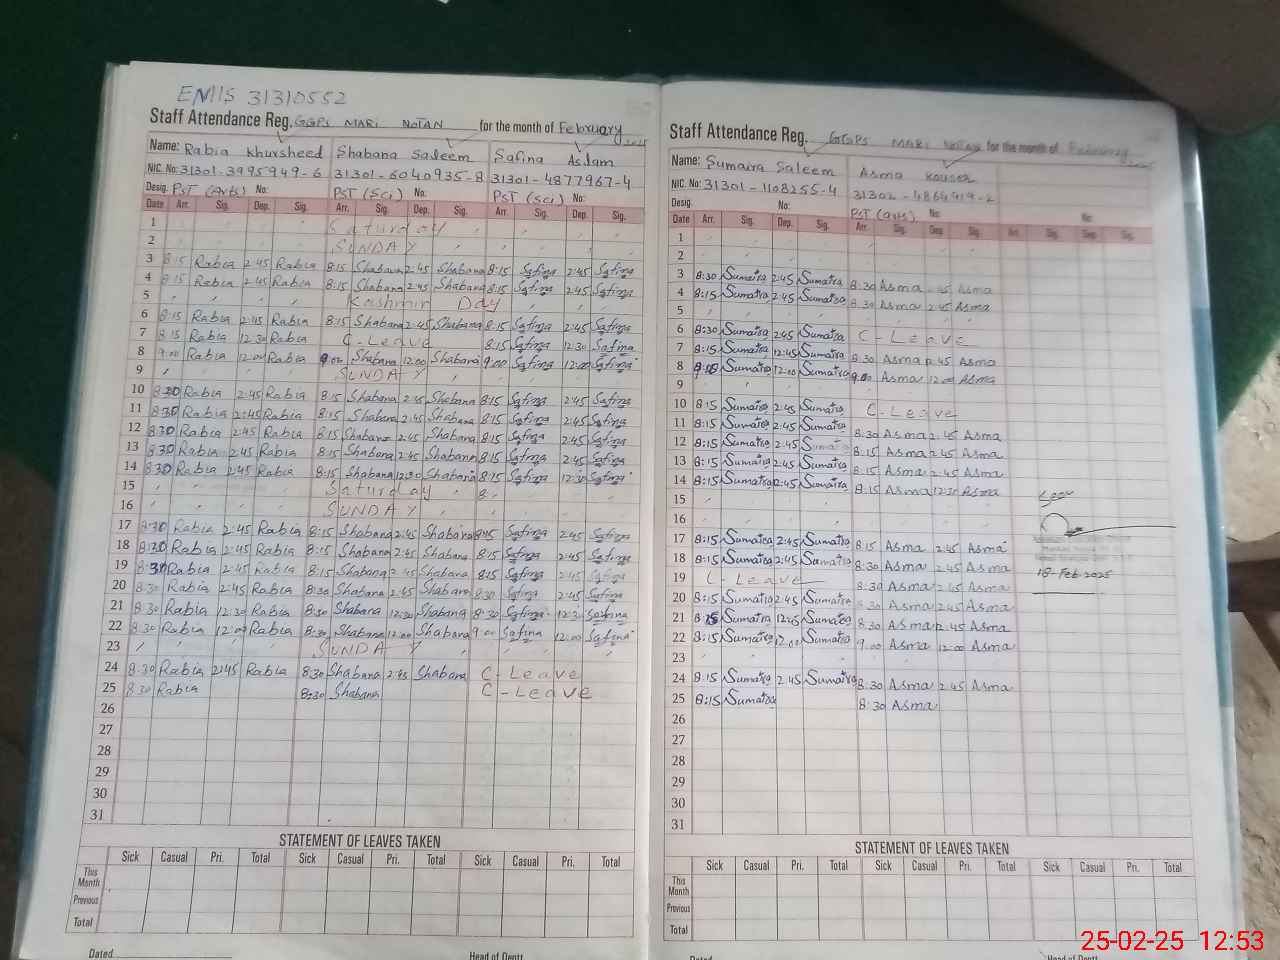 EMIS 31310552
Staff Attendance Reg. GGPS MARI NOTAN for the month of February
Name: Rabia Khursheed Shabana Saleem Safina Aslam
NIC. No: 31301-3995949-6 31301-6040935-8 31301-4877967-4
Desig. PST (Arts) No: PST (Sci) No: PST (Sci) No:
Date Arr. Sig. Dep. Sig. Arr. Sig. Dep. Sig. Arr. Sig. Dep. Sig.
1 Saturday
2 SUNDAY
3 8:15 Rabia 2:45 Rabia 8:15 Shabana 2:45 Shabana 8:15 Safina 2:45 Safina
4 8:15 Rabia 2:45 Rabia 8:15 Shabana 2:45 Shabana 8:15 Safina 2:45 Safina
5 Kashmir Day
6 8:15 Rabia 2:45 Rabia 8:15 Shabana 2:45 Shabana 8:15 Safina 2:45 Safina
7 8:15 Rabia 12:30 Rabia C-Leave 8:15 Safina 12:30 Safina
8 9:00 Rabia 12:00 Rabia 9:00 Shabana 12:00 Shabana 9:00 Safina 12:00 Safina
9 SUNDAY
10 8:30 Rabia 2:45 Rabia 8:15 Shabana 2:45 Shabana 8:15 Safina 2:45 Safina
11 8:30 Rabia 2:45 Rabia 8:15 Shabana 2:45 Shabana 8:15 Safina 2:45 Safina
12 8:30 Rabia 2:45 Rabia 8:15 Shabana 2:45 Shabana 8:15 Safina 2:45 Safina
13 8:30 Rabia 2:45 Rabia 8:15 Shabana 2:45 Shabana 8:15 Safina 2:45 Safina
14 8:30 Rabia 2:45 Rabia 8:15 Shabana 12:30 Shabana 8:15 Safina 12:30 Safina
15 Saturday 8:
16 SUNDAY
17 8:30 Rabia 2:45 Rabia 8:15 Shabana 2:45 Shabana 8:15 Safina 2:45 Safina
18 8:30 Rabia 2:45 Rabia 8:15 Shabana 2:45 Shabana 8:15 Safina 2:45 Safina
19 8:30 Rabia 2:45 Rabia 8:15 Shabana 2:45 Shabana 8:15 Safina 2:45 Safina
20 8:30 Rabia 2:45 Rabia 8:30 Shabana 2:45 Shabana 8:30 Safina 2:45 Safina
21 8:30 Rabia 12:30 Rabia 8:30 Shabana 12:30 Shabana 8:30 Safina 12:30 Safina
22 8:30 Rabia 12:00 Rabia 8:30 Shabana 12:00 Shabana 9:00 Safina 12:00 Safina
23 SUNDAY
24 8:30 Rabia 2:45 Rabia 8:30 Shabana 2:45 Shabana C-Leave
25 8:30 Rabia 8:30 Shabana C-Leave
26
27
28
29
30
31
STATEMENT OF LEAVES TAKEN
Sick Casual Pri. Total Sick Casual Pri. Total Sick Casual Pri. Total
This Month
Previous
Total
Dated Head of Deptt.
Staff Attendance Reg. GGPS MARI NOTAN for the month of February
Name: Sumaira Saleem Asma Kousar
NIC. No: 31301-1108255-4 31302-4864919-2
Desig. No: PST (arts) No: No:
Date Arr. Sig. Dep. Sig. Arr. Sig. Dep. Sig. Arr. Sig. Dep. Sig.
1
2
3 8:30 Sumaira 2:45 Sumaira 8:30 Asma 2:45 Asma
4 8:15 Sumaira 2:45 Sumaira 8:30 Asma 2:45 Asma
5
6 8:30 Sumaira 2:45 Sumaira C-Leave
7 8:15 Sumaira 12:45 Sumaira 8:30 Asma 2:45 Asma
8 Sumaira 12:00 Sumaira 9:00 Asma 12:00 Asma
9
10 8:15 Sumaira 2:45 Sumaira C-Leave
11 8:15 Sumaira 2:45 Sumaira 8:30 Asma 2:45 Asma
12 8:15 Sumaira 2:45 Sumaira 8:15 Asma 2:45 Asma
13 8:15 Sumaira 2:45 Sumaira 8:15 Asma 2:45 Asma
14 8:15 Sumaira 2:45 Sumaira 8:15 Asma 12:30 Asma
15
16
17 8:15 Sumaira 2:45 Sumaira 8:15 Asma 2:45 Asma
18 8:15 Sumaira 2:45 Sumaira 8:30 Asma 2:45 Asma
19 C-Leave 8:30 Asma 2:45 Asma
20 8:15 Sumaira 2:45 Sumaira 8:30 Asma 2:45 Asma
21 8:15 Sumaira 12:45 Sumaira 8:30 Asma 2:45 Asma
22 8:15 Sumaira 12:00 Sumaira 9:00 Asma 12:00 Asma
23
24 8:15 Sumaira 2:45 Sumaira 8:30 Asma 2:45 Asma
25 8:15 Sumaira 8:30 Asma
26
27
28
29
30
31
18-Feb-2025
STATEMENT OF LEAVES TAKEN
Sick Casual Pri. Total Sick Casual Pri. Total Sick Casual Pri. Total
This Month
Previous
Total
Dated Head of Deptt.
25-02-25 12:53